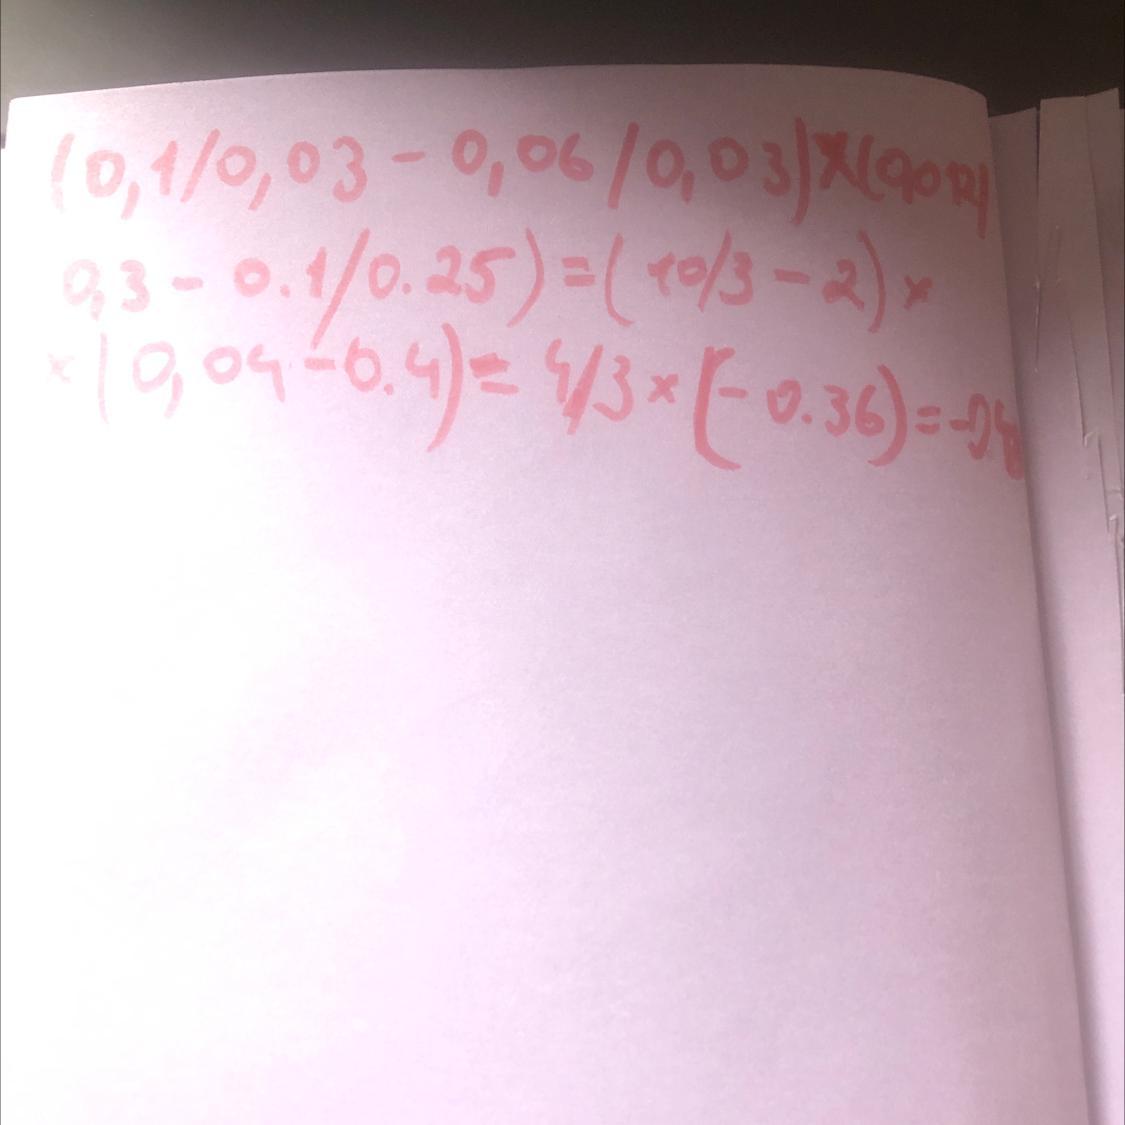 (0,1/0,03 - 0,06/0,03)×(0,012/
0,3 - 0.1/0.25)=(10/3 - 2)×
×(0,04-0.4)= 4/3×(-0.36)=-0.48